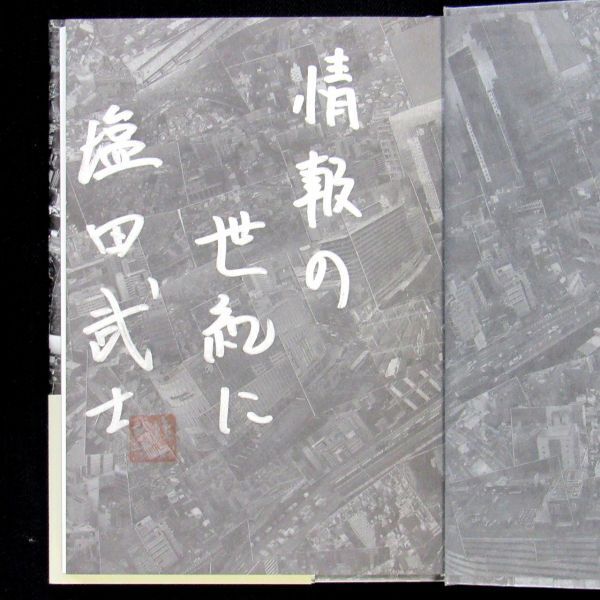 情報の
世紀に
塩田武士